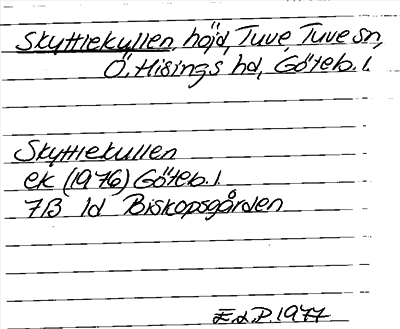 Skyttlekullen, höjd, Tuve, Tuve sn,
Ö. Hisings hd, Göteb. l.
Skyttlekullen
ek (1976) Göteb. l.
7B 1d Biskopsgården
E.d.P. 1977